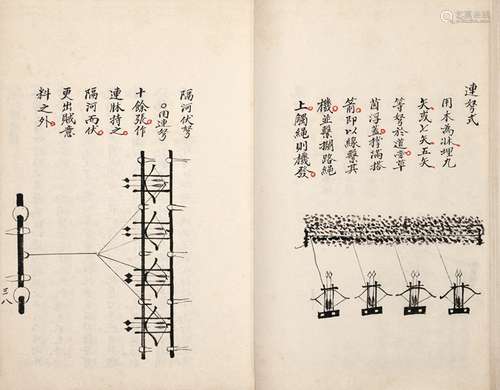 連弩式
用木為床埋九
矢或七矢五矢
等弩於道旁草
茵浮蓋撐滿搭
箭即以線繫其
機並繫路繩
上觸繩則機發
隔河伏弩
用連弩
十餘張作
連脉持之
隔河而伏
更出賊意
料之外
三八